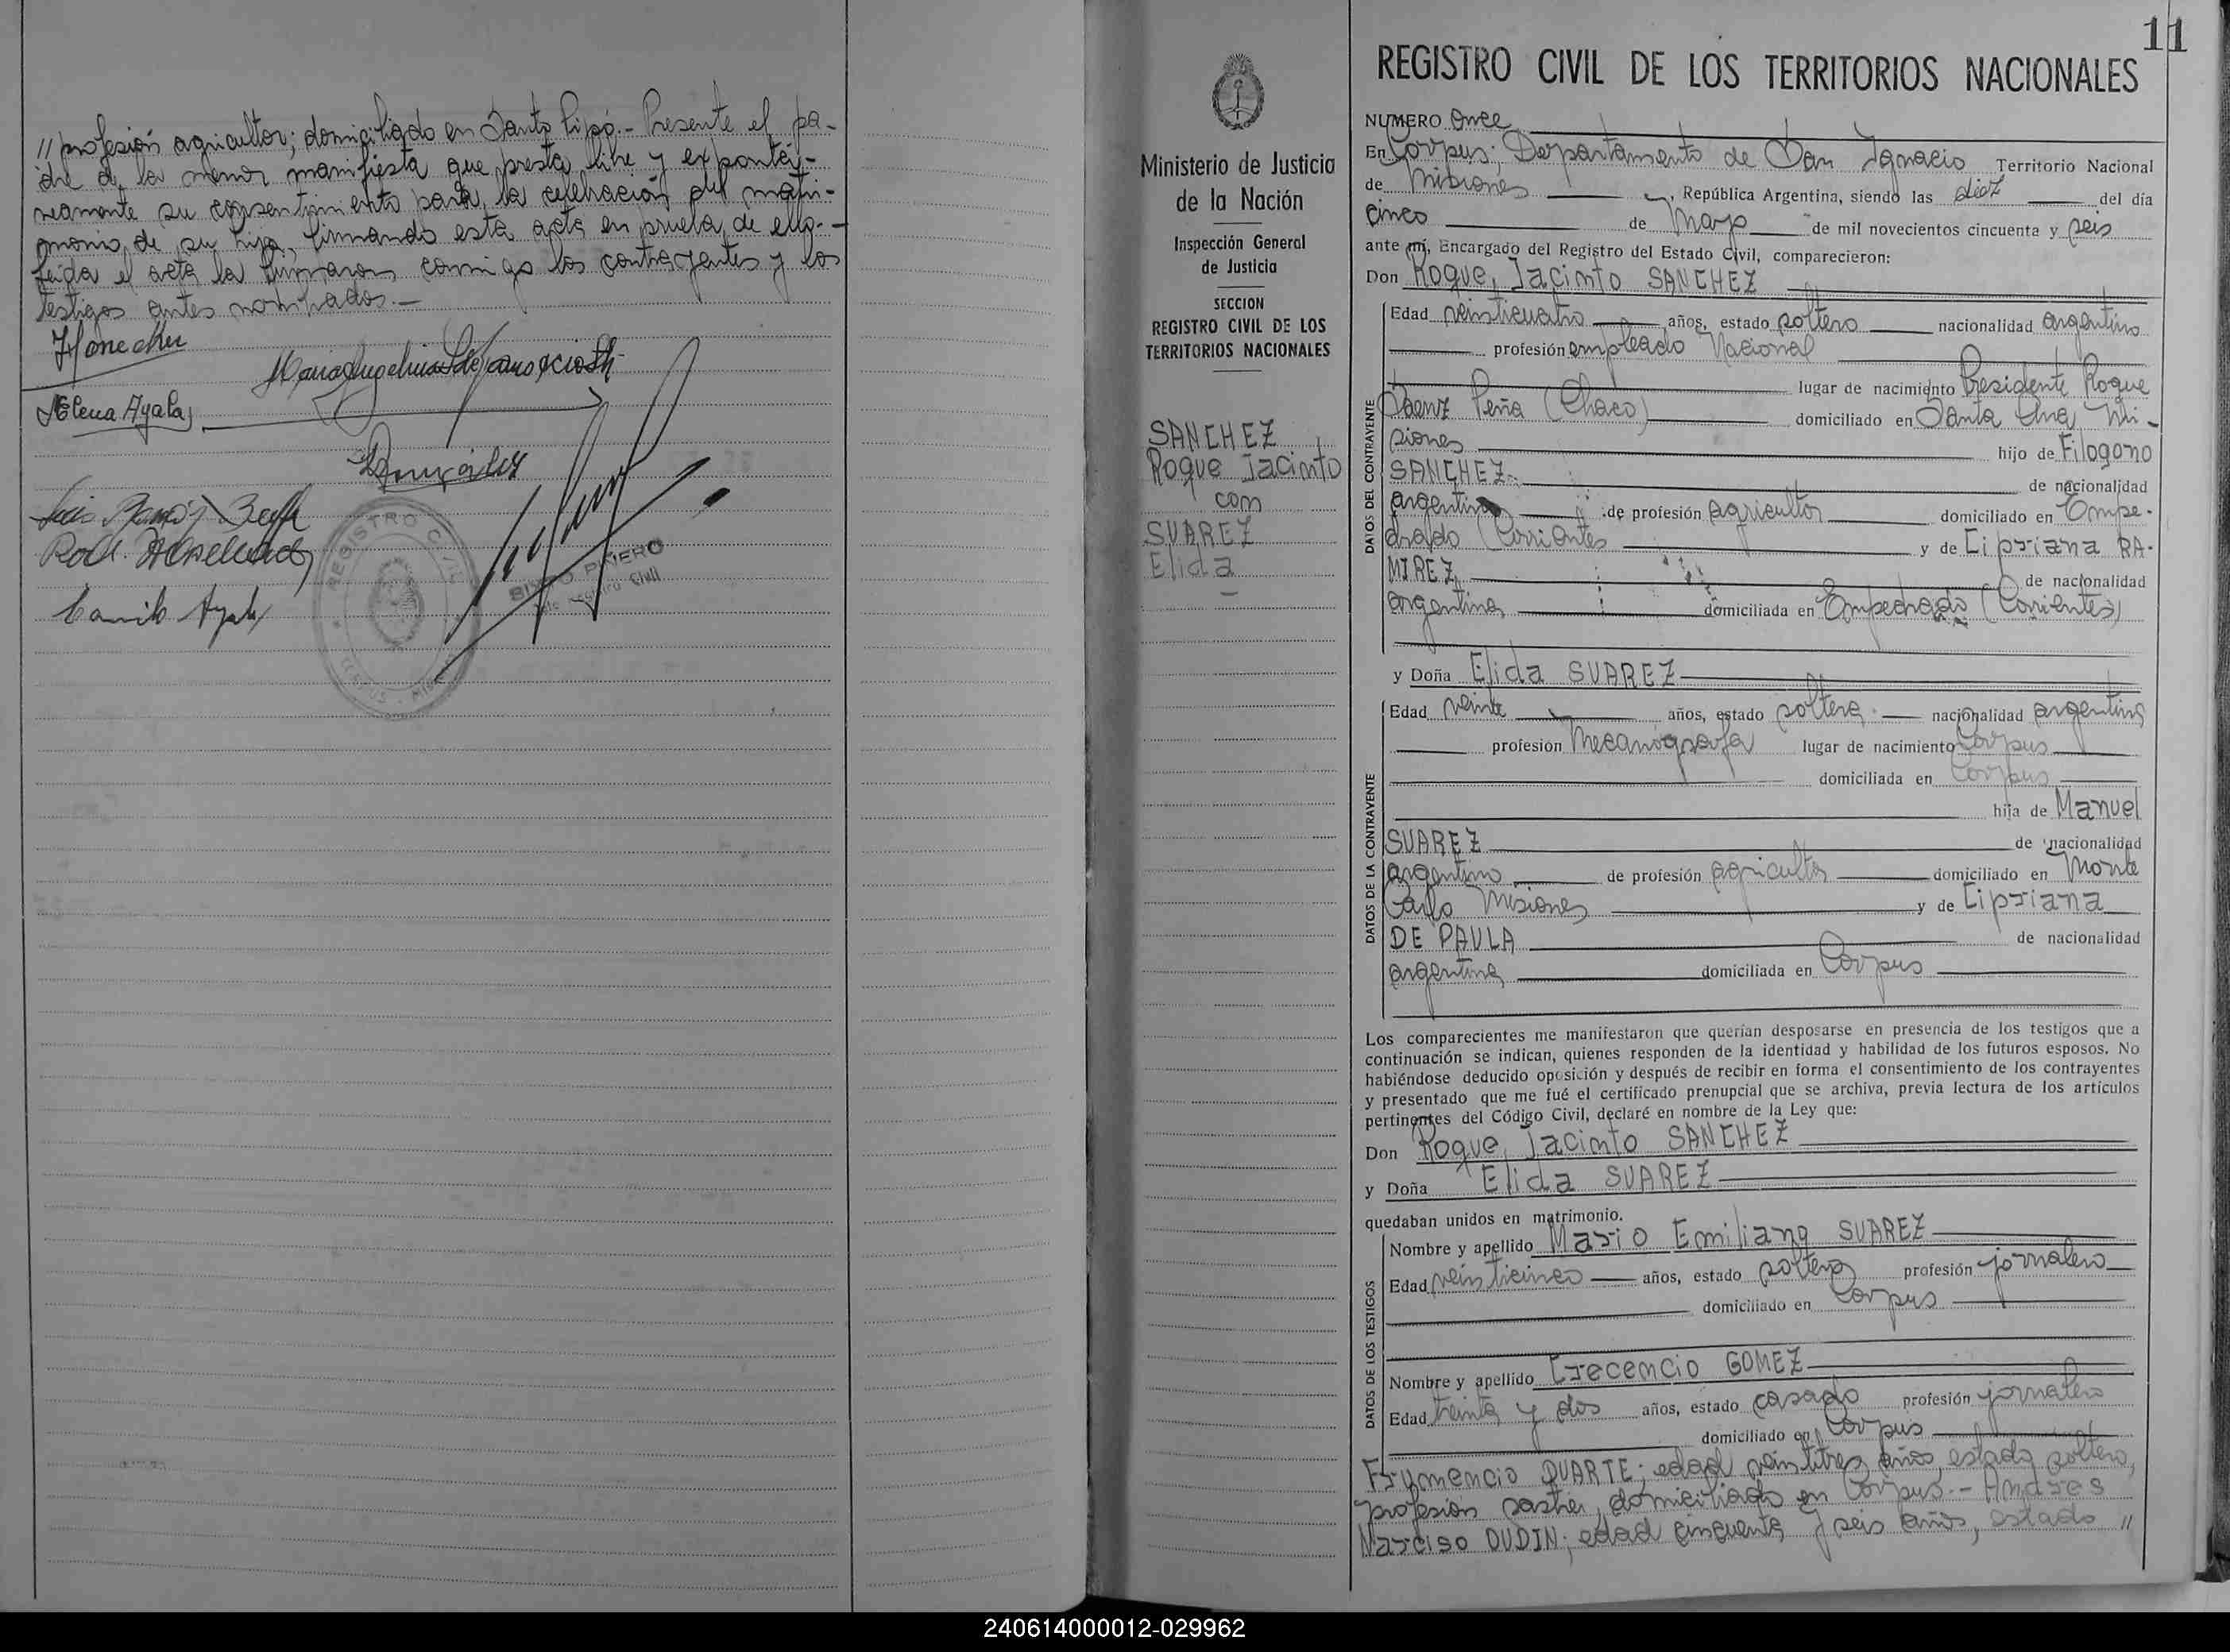 // profesión agricultor; domiciliado en Santo Pipó.- Presente el pa-
dre de la menor manifiesta que presta libre y expontá-
neamente su consentimiento para la celebración del matri-
monio de su hija, firmando esta acta en prueba de ello.-
Leída el acta la firmaron conmigo los contrayentes y los
testigos antes nombrados.-
Elena Ayala
REGISTRO CIVIL
PIÑERO
Camilo Ayala
Ministerio de Justicia
de la Nación
Inspección General
de Justicia
SECCION
REGISTRO CIVIL DE LOS
TERRITORIOS NACIONALES
SANCHEZ
Roque Jacinto
con
SUAREZ
Elida
11
REGISTRO CIVIL DE LOS TERRITORIOS NACIONALES
NUMERO Once
En Corpus; Departamento de San Ignacio Territorio Nacional
de Misiones, República Argentina, siendo las diez del día
cinco de Mayo de mil novecientos cincuenta y seis
ante mí, Encargado del Registro del Estado Civil, comparecieron:
Don Roque Jacinto SANCHEZ
DATOS DEL CONTRAYENTE
Edad veinticuatro años, estado soltero nacionalidad argentino
profesión empleado Nacional
lugar de nacimiento Presidente Roque
Saenz Peña (Chaco) domiciliado en Santa Ana Mi-
siones hijo de Filogono
SANCHEZ de nacionalidad
argentino de profesión agricultor domiciliado en Empe-
drado Corrientes y de Cipriana RA-
MIREZ de nacionalidad
argentina domiciliada en Empedrado (Corrientes)
y Doña Elida SUAREZ
DATOS DE LA CONTRAYENTE
Edad veinte años, estado soltera nacionalidad argentina
profesión Mecanógrafa lugar de nacimiento Corpus
domiciliada en Corpus
hija de Manuel
SUAREZ de nacionalidad
argentino de profesión agricultor domiciliado en Monte
Carlo Misiones y de Cipriana
DE PAULA de nacionalidad
argentina domiciliada en Corpus
Los comparecientes me manifestaron que querían desposarse en presencia de los testigos que a
continuación se indican, quienes responden de la identidad y habilidad de los futuros esposos. No
habiéndose deducido oposición y después de recibir en forma el consentimiento de los contrayentes
y presentado que me fué el certificado prenupcial que se archiva, previa lectura de los artículos
pertinentes del Código Civil, declaré en nombre de la Ley que:
Don Roque Jacinto SANCHEZ
y Doña Elida SUAREZ
quedaban unidos en matrimonio.
DATOS DE LOS TESTIGOS
Nombre y apellido Mario Emiliano SUAREZ
Edad veinticinco años, estado soltero profesión jornalero
domiciliado en Corpus
Nombre y apellido Crecencio GOMEZ
Edad treinta y dos años, estado casado profesión jornalero
domiciliado en Corpus
Frumencio DUARTE; edad veintitres años, estado soltero,
profesión sastre, domiciliado en Corpus.- Andres
Narciso DUDIN; edad cincuenta y seis años, estado //
240614000012-029962